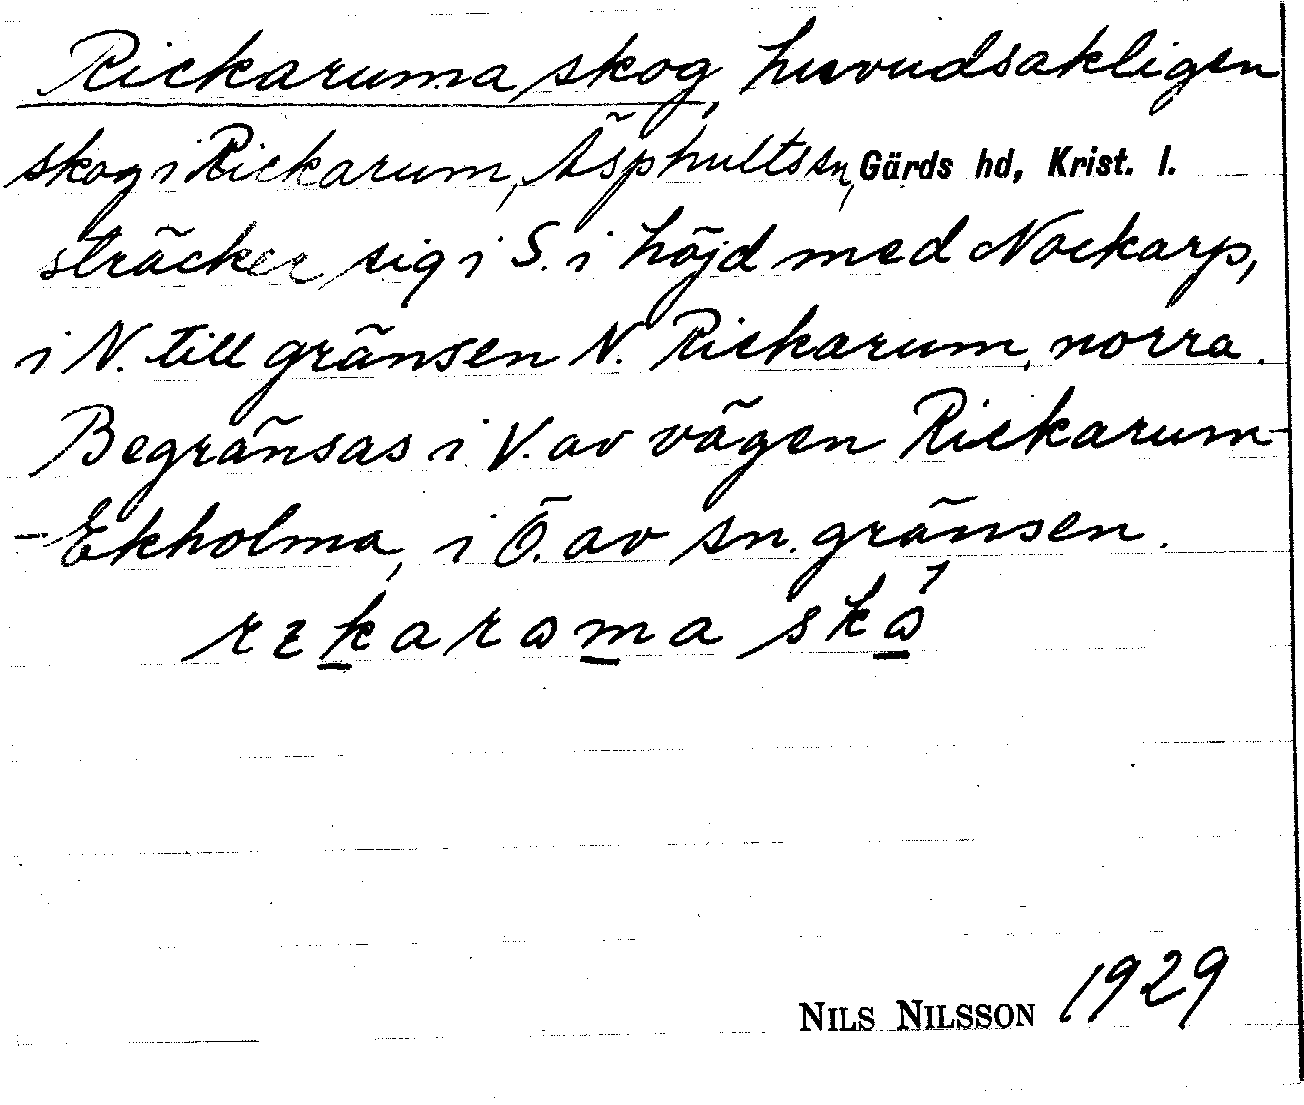 Rickaruma skog, huvudsakligen
skog i Rickarum, Äsphults sn, Gärds hd, Krist. l.
sträcker sig i S. i höjd med Nockarp,
i N. till gränsen N. Rickarum, norra.
Begränsas i V. av vägen Rickarum-
-Ekholma, i Ö. av sn. gränsen.
NILS NILSSON 1929